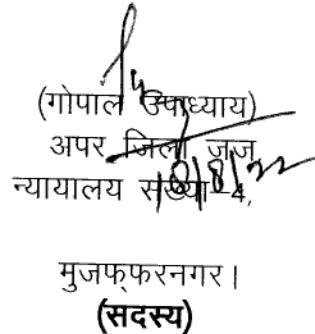 (गोपाल उपाध्याय)
अपर जिला जज
न्यायालय संख्या-4,
18/8/22
मुजफ्फरनगर।
(सदस्य)